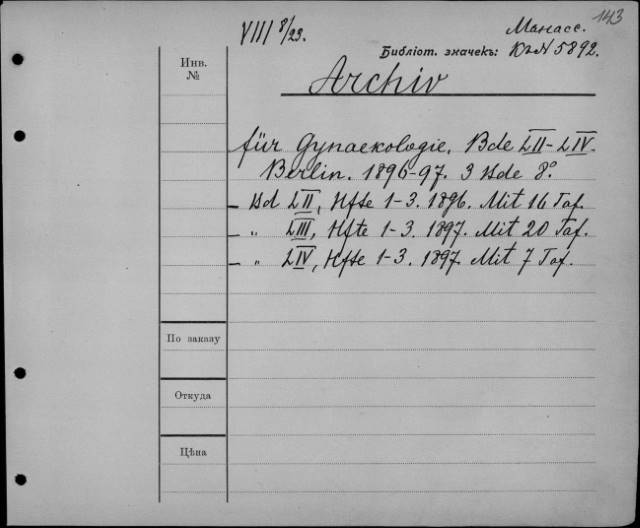 143
VIII 8/23.
Манасс.
Библіот. значекъ: К2 N 5892.
Инв.
№
Archiv
für Gynaekologie. Bde LII-LIV.
Berlin. 1896-97. 3 Bde 8°.
– Bd LII, Hfte 1-3. 1896. Mit 16 Taf.
„ LIII, Hfte 1-3. 1897. Mit 20 Taf.
– „ LIV, Hfte 1-3. 1897. Mit 7 Taf.
По заказу
Откуда
Цѣна